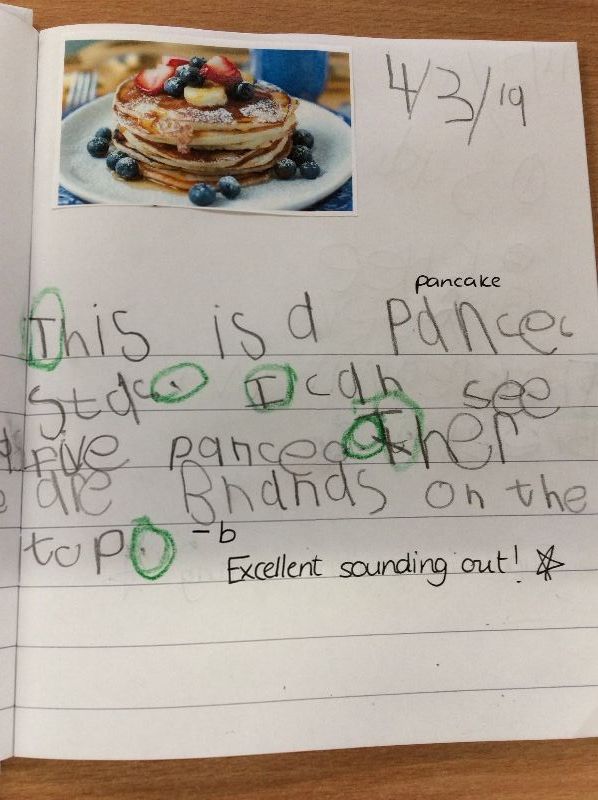 4/3/19
pancake
This is a pancec
Stac. I can see
Five pancec. Ther
are Bnanas on the
top.
-b
Excellent sounding out!